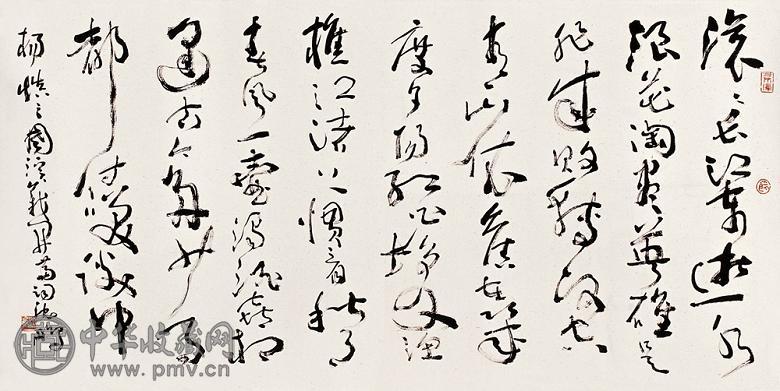 滚滚长江东逝水
浪花淘尽英雄是
非成败转头空
青山依旧在几
度夕阳红白发渔
樵江渚上惯看秋月
春风一壶浊酒喜相
逢古今多少事
都付笑谈中
杨慎三国演义开篇词
中华收藏网
www.pmv.cn